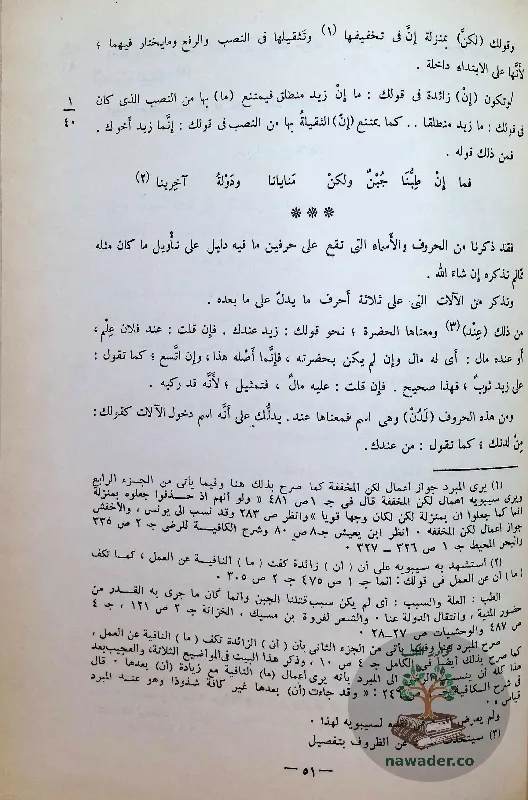 وقولك (لكنَّ) بمنزلة إنَّ فى تخفيفها (١) وتَثقيلها فى النصب والرفع ومايختار فيهما ؛
لأَنَّها على الابتداء داخلة .
وتكون (إنْ) زائدة فى قولك : ما إنْ زيد منطلق فيمتنع (ما) بها من النصب الذى كان
١
٤٠
فى قولك : ما زيد منطلقا . . كما يمتنع (إنَّ) الثقيلةُ بها من النصب فى قولك : إنَّما زيد أخوك .
فمن ذلك قوله .
فما إنْ طِبُّنَا جُبْنٌ ولكنْ منايانا ودَوْلةُ آخرِينا (٢)
***
فقد ذكرنا من الحروف والأَسماء التى تقع على حرفين ما فيه دليل على تأْويل ما كان مثله
ممَّا لم نذكره إن شاء الله .
ونذكر من الآلات التى على ثلاثة أحرف ما يدلّ على ما بعده .
من ذلك (عِنْد)(٣) ومعناها الحضرة ؛ نحو قولك : زيد عندك . فإن قلت : عند فلان عِلْم ،
أو عنده مال : أى له مال وإن لم يكن بحضرته ، فإنَّما أصْله هذا ، وإن اتَّسع ؛ كما تقول :
على زيد ثوبٌ ؛ فهذا صحيح . فإن قلت : عليه مالٌ ، فتمثيل ؛ لأَنَّه قد ركبه .
ومن هذه الحروف (لَدُنْ) وهى اسم فمعناها عند . يدلُّك على أنَّه اسم دخول الآلات كقولك :
مِنْ لدنك ؛ كما تقول : من عندك .
(١) يرى المبرد جواز اعمال لكن المخففة كما صرح بذلك هنا وفيما يأتى من الجزء الرابع
ويرى سيبويه اهمال لكن المخففة قال فى جـ ١ ص ٤٨١ « ولو أنهم اذ حذفوا جعلوه بمنزلة
انما كما جعلوا ان بمنزلة لكن لكان وجها قويا » وانظر ص ٢٨٣ وقد نسب الى يونس ، والأخفش
جواز اعمال لكن المخففة . انظر ابن يعيش جـ ٨ ص ٨٠ وشرح الكافية للرضى جـ ٢ ص ٣٣٥
والبحر المحيط جـ ١ ص ٣٢٦ - ٣٢٧ .
(٢) استشهد به سيبويه على أن ( ان ) زائدة كفت ( ما ) النافية عن العمل ، كما تكف
( ما ) أن عن العمل فى قولك : انما جـ ١ ص ٤٧٥ جـ ٢ ص ٣٠٥ .
الطب : العلة والسبب : أى لم يكن سبب قتلنا الجبن وانما كان ما جرى به القدر من
حضور المنية ، وانتقال الدولة عنا . والشعر لفروة بن مسيك ، الخزانة جـ ٢ ص ١٢١ ، جـ ٤
ص ٤٨٧ والوحشيات ص ٢٧-٢٨ .
صرح المبرد هنا وفيما يأتى من الجزء الثانى بأن ( ان ) الزائدة تكف ( ما ) النافية عن العمل ،
كما صرح بذلك أيضا فى الكامل جـ ٤ ص ١٠ ، وذكر هذا البيت فى المواضيع الثلاثة، والعجيب بعد
هذا كله أن ينسب الى المبرد بأنه يرى أعمال (ما) النافية مع زيادة (أن) بعدها . قال
فى شرح الكافية : « وقد جاءت (أن) بعدها غير كافة شذوذا وهو عند المبرد
قياس » .
ولم يعرض لسيبويه لهذا .
(٣) سيتحدث عن الظروف بتفصيل
— ٥١ —
nawader.co